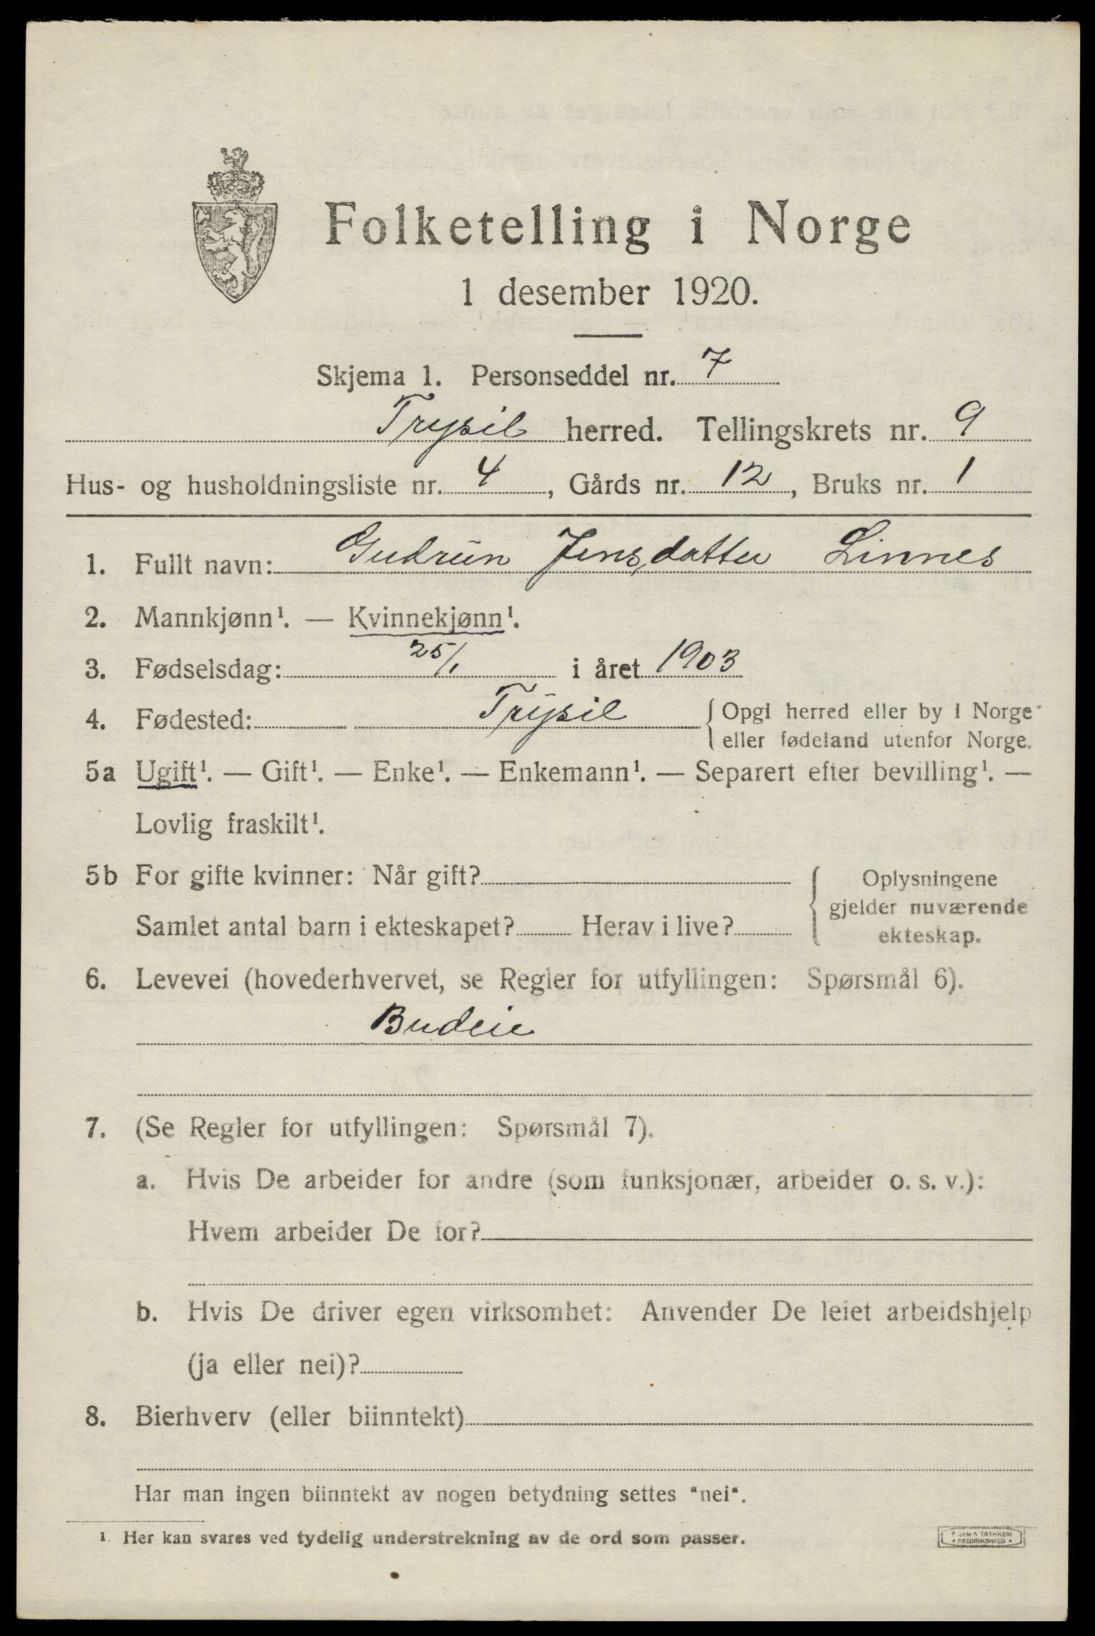 Folketelling i Norge
1 desember 1920.
Skjema 1. Personseddel nr. 7
Trysil herred. Tellingskrets nr. 9
Hus- og husholdningsliste nr. 4, Gårds nr. 12, Bruks nr. 1
1. Fullt navn: Gudrun Jensdatter Linnes
2. Mannkjønn¹. — Kvinnekjønn¹.
3. Fødselsdag: 25/1 i året 1903
4. Fødested: Trysil {Opgi herred eller by i Norge
eller fødeland utenfor Norge.
5a Ugift¹. — Gift¹. — Enke¹. — Enkemann¹. — Separert efter bevilling¹. —
Lovlig fraskilt¹.
5b For gifte kvinner: Når gift? { Oplysningene
gjelder nuværende
Samlet antal barn i ekteskapet? Herav i live?
ekteskap.
6. Levevei (hovederhvervet, se Regler for utfyllingen: Spørsmål 6).
Budeie
7. (Se Regler for utfyllingen: Spørsmål 7).
a. Hvis De arbeider for andre (som funksjonær, arbeider o. s. v.):
Hvem arbeider De for?
b. Hvis De driver egen virksomhet: Anvender De leiet arbeidshjelp
(ja eller nei)?
8. Bierhverv (eller biinntekt)
Har man ingen biinntekt av nogen betydning settes "nei".
¹ Her kan svares ved tydelig understrekning av de ord som passer.